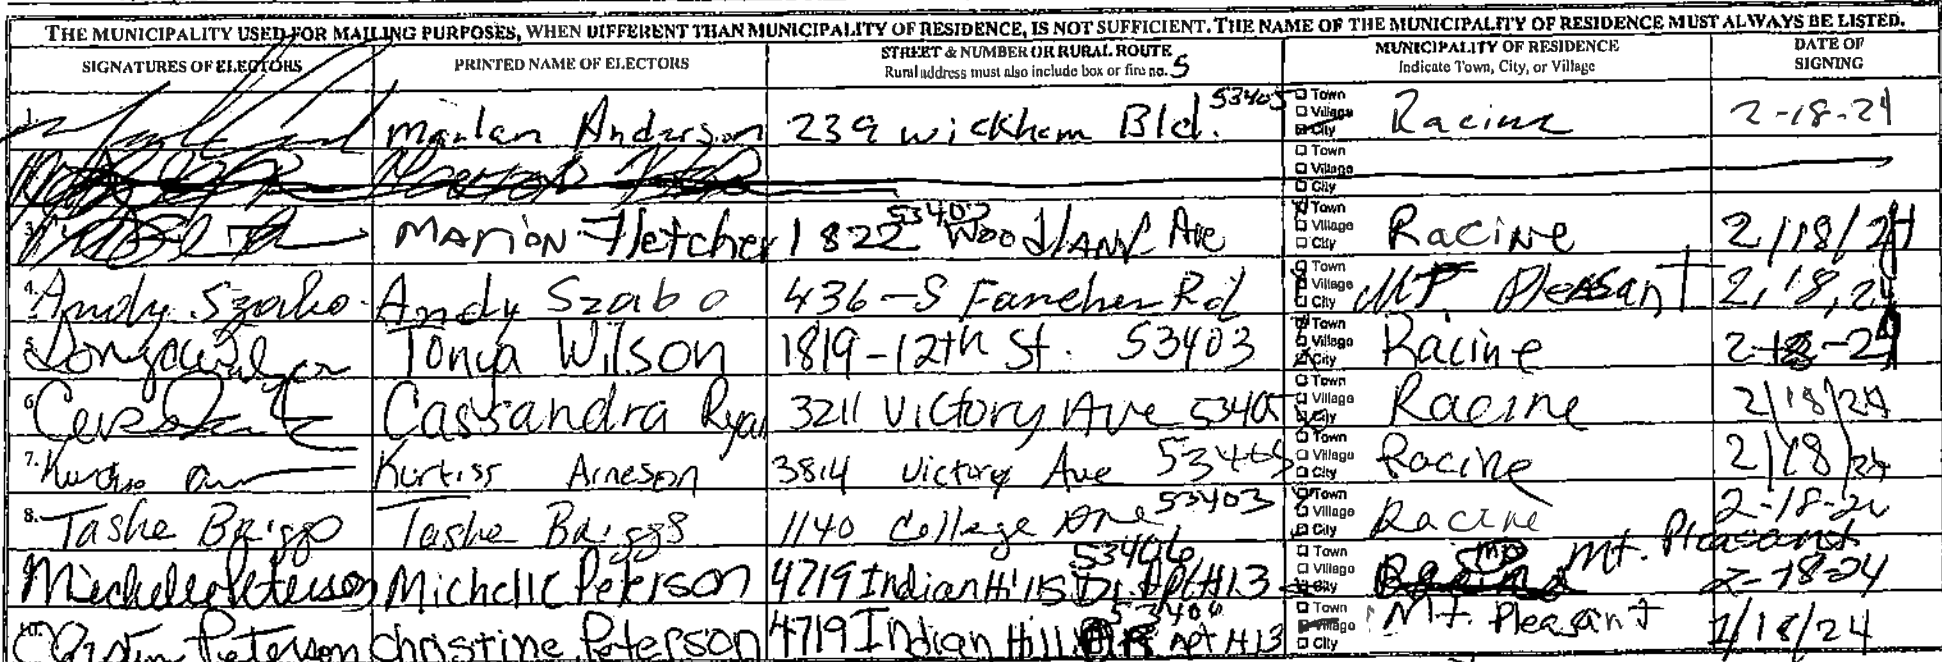 THE MUNICIPALITY USED FOR MAILING PURPOSES, WHEN DIFFERENT THAN MUNICIPALITY OF RESIDENCE, IS NOT SUFFICIENT. THE NAME OF THE MUNICIPALITY OF RESIDENCE MUST ALWAYS BE LISTED.
SIGNATURES OF ELECTORS PRINTED NAME OF ELECTORS STREET & NUMBER OR RURAL ROUTE MUNICIPALITY OF RESIDENCE DATE OF SIGNING
Rural address must also include box or fire no. S Indicate Town, City, or Village
1. Marlan Anderson 239 Wickham Bld. 53405 Town Village City Racine 2-18-24
Town Village City
3. Marion Fletcher 1822 Woodland Ave 53403 Town Village City Racine 2/18/24
4. Andy Szabo Andy Szabo 436-S Fancher Rd Town Village City MT Pleasant 2,18,24
5. Tonya Wilson 1819-12th St. 53403 Town Village City Racine 2-18-24
6. Cassandra Ryan 3211 Victory Ave 53405 Town Village City Racine 2/18/24
7. Kurtiss Arneson 3814 Victory Ave 53405 Town Village City Racine 2/18/24
8. Tashe Briggs Tashe Briggs 1140 College Ave 53403 Town Village City Racine 2-18-24
Michelle Peterson Michelle Peterson 4719 Indian Hills Dr. Apt H13 53406 Town Village City MP Mt. Pleasant 2-18-24
10. Peterson Christine Peterson 4719 Indian Hill Apt H13 53406 Town Village City Mt. Pleasant 1/18/24